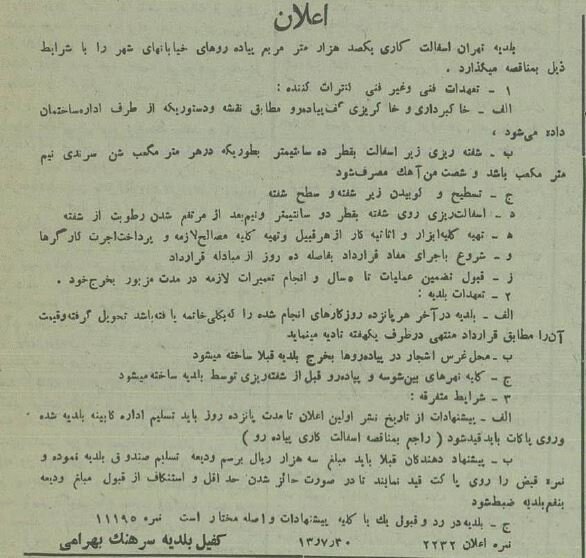 اعلان
بلدیه تهران اسفالت کاری یکصد هزار متر مربع پیاده روهای خیابانهای شهر را با شرایط
ذیل بمناقصه میگذارد .
۱ - تعهدات فنی وغیر فنی کنترات کننده :
الف - خاکبرداری و خاکریزی کف پیاده‌رو مطابق نقشه ودستوریکه از طرف اداره‌ساختمان
داده می‌شود ،
ب - شفته ریزی زیر اسفالت بقطر ده سانتیمتر بطوریکه درهر متر مکعب شن سرندی نیم
متر مکعب باشد و شصت من آهك مصرف‌شود
ج - تسطیح و کوبیدن زیر شفته‌و سطح شفته
د - اسفالت‌ریزی روی شفته بقطر دو سانتیمتر ونیم‌بعد از مرتفع شدن رطوبت از شفته
ه - تهیه کلیه‌ابزار و اثاثیه کار از هرقبیل وتهیه کلیه مصالح‌لازمه و پرداخت‌اجرت کارگرها
و - شروع باجرای مفاد قرارداد بفاصله ده روز از مبادله قرارداد
ز - قبول تضمین عملیات تا ۵سال و انجام تعمیرات لازمه در مدت مزبور بخرج‌خود .
۲ - تعهدات بلدیه :
الف - بلدیه درآخر هر پانزده روزکارهای انجام شده را که‌بکلی‌خاتمه یافته‌باشد تحویل گرفته‌وقیمت
آن‌را مطابق قرارداد منتهی درظرف یکهفته تادیه مینماید
ب - محل‌غرس اشجار در پیاده‌روها بخرج بلدیه قبلا ساخته میشود
ج - کلیه نهرهای بین‌شوسه و پیاده‌رو قبل از شفته‌ریزی توسط بلدیه ساخته‌میشود
۳ - شرایط متفرقه :
الف - پیشنهادات از تاریخ نشر اولین اعلان تا مدت پانزده روز باید تسلیم اداره کابینه بلدیه شده
وروی پاکات باید قیدشود ( راجع بمناقصه اسفالت کاری پیاده رو )
ب - پیشنهاد دهندگان قبلا باید مبلغ سه هزار ریال برسم ودیعه تسلیم صندوق بلدیه نموده و
نمره قبض را روی پاکت قید نمایند تا در صورت حائز شدن حد اقل و استنکاف از قبول مبلغ ودیعه
بنفع‌بلدیه ضبط‌شود
ج - بلدیه در رد و قبول یك یا کلیه پیشنهادات واصله مختار است نمره ۱۱۱۹۵
نمره اعلان ۲۲۳۲ ۱۳٫۷٫۳۰ کفیل بلدیه سرهنك بهرامی